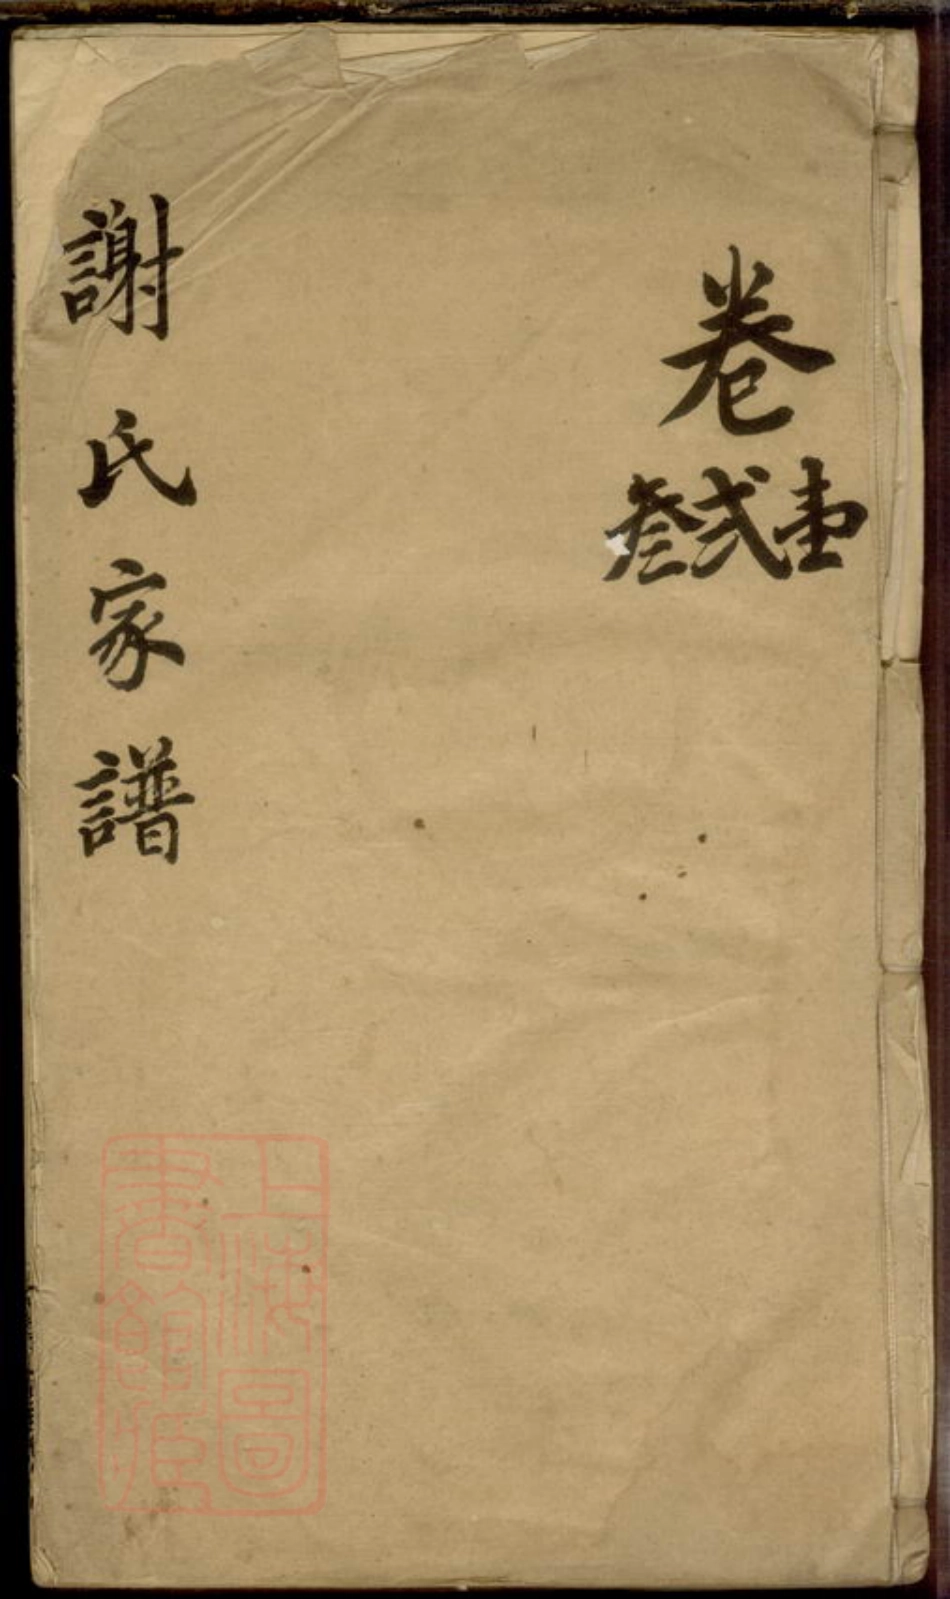 卷
壹貳叁
謝氏家譜
上海圖
書館藏